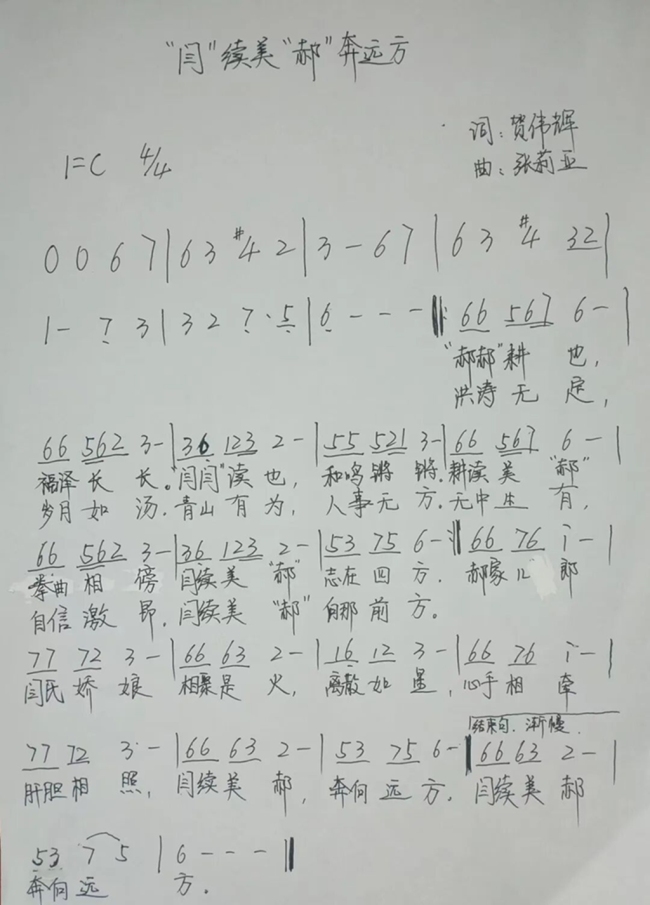 “闫”续美“郝”奔远方
词：贺伟辉
1=C 4/4
曲：张莉亚
0 0 6 7 | 6 3 #4 2 | 3 - 6 7 | 6 3 #4 32 |
1 - 7 3 | 3 2 7 · 5 | 6 - - - ‖: 66 567 6 - |
“郝郝”耕 也，
洪涛无定，
66 562 3 - | 36 123 2 - | 55 521 3 - | 66 567 6 - |
福泽长长。“闫闫”读也，和鸣锵锵。耕读美“郝”
岁月如汤。青山有为，人事无方。无中生有，
66 562 3 - | 36 123 2 - | 53 75 6 - :‖ 66 76 i - |
相傍 闫续美“郝”志在四方。郝家儿郎
自信激昂，闫续美“郝”前方。
77 72 3 - | 66 63 2 - | 16 12 3 - | 66 76 i - |
闫氏娇娘 相聚是火，离散如星，心手相牵
结束句．渐慢
77 72 3 - | 66 63 2 - | 53 75 6 - | 66 63 2 - |
肝胆相照，闫续美郝，奔向远方．闫续美郝
53 7 5 | 6 - - - ‖
奔向远方．